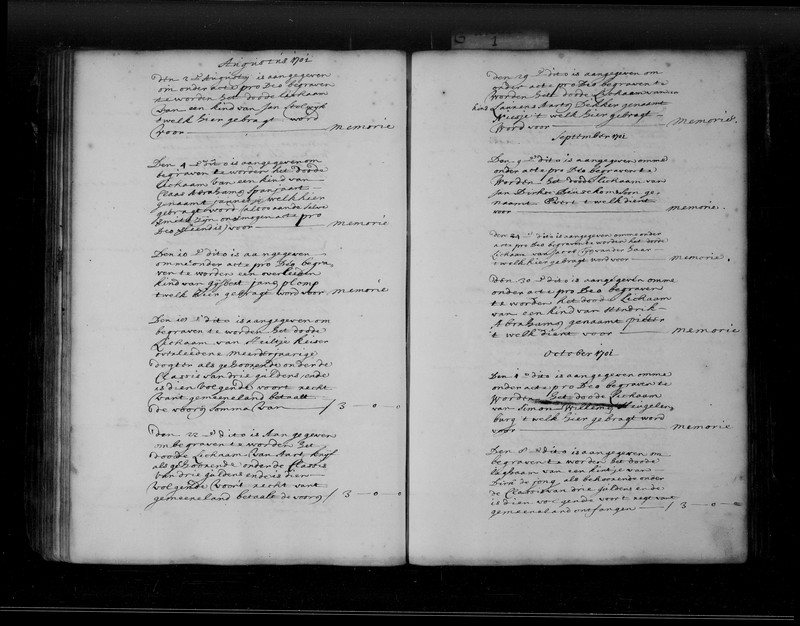 Augustus 1701
Den 2 Augusty is aangegeven
om onder acte pro Deo begraven
te worden het doode lichaam
van een kind van Jan
t welk hier gebragt word
voor Memorie
Den 4 dito is aangegeven om
begraven te worden het doode
Lichaam van een kind van
Claas Abrahams Spanjaart
genaamt Jannetje welk hier
gebragt word
zijn onvermogen acte pro
Deo voor Memorie
Den 10 dito is aangegeven
omme onder acte pro Deo begra
ven te worden een overleeden
kind van Gijsbert Jans Plomp
t welk hier gebragt word voor Memorie
Den 10 dito is aangegeven om
begraven te worden het doode
Lichaam van Neeltje Keiser
overleedene meerderjaarige
dogter als gehoorende onder de
Classis van drie guldens ende
is dien volgende voort regt
vant gemeeneland betaalt
de voors somma van / 3 - 0 - 0
Den 22 dito is Aangegeven
om begraven te worden het
doode Lichaam van Aart
als gehoorende onder de Classis
van drie guldens ende is dien
volgende voort recht vant
gemeeneland betaalt de voors / 3 - 0 - 0
Den 29 dito is aangegeven om
onder acte pro Deo begraven te
worden het doode Lichaam van een
kind Laurens Aartse Dekker genaamt
Neesje t welk hier gebragt
word voor Memorie.
September 1701
Den 9 dito is aangegeven omme
onder acte pro Deo begraven te
worden het doode Lichaam van
Jan Dirkse ge
naamt Evert t welk dient
voor Memorie.
Den 24 dito is aangegeven omme onder
acte pro Deo begraven te worden het doode
Lichaam van
t welk hier gebragt word voor Memorie.
Den 30 dito is aangegeven omme
onder acte pro Deo begraven
te worden het doode Lichaam
van een kind van Hendrik
Abrahams genaamt Pieter
t welk dient voor Memorie
October 1701
Den dito is aangegeven omme
onder acte pro Deo begraven te
worden het doode Lichaam
van Simon Willems Hengelen
burg t welk hier gebragt word
voor Memorie
Den 8 dito is aangegeven om
begraven te worden het doode
lighaam van een kintje van
Dirk de Jong als behoorende onder
de Classis van drie guldens ende
is dien volgende voort regt vant
gemeeneland ontfangen / 3 - 0 -